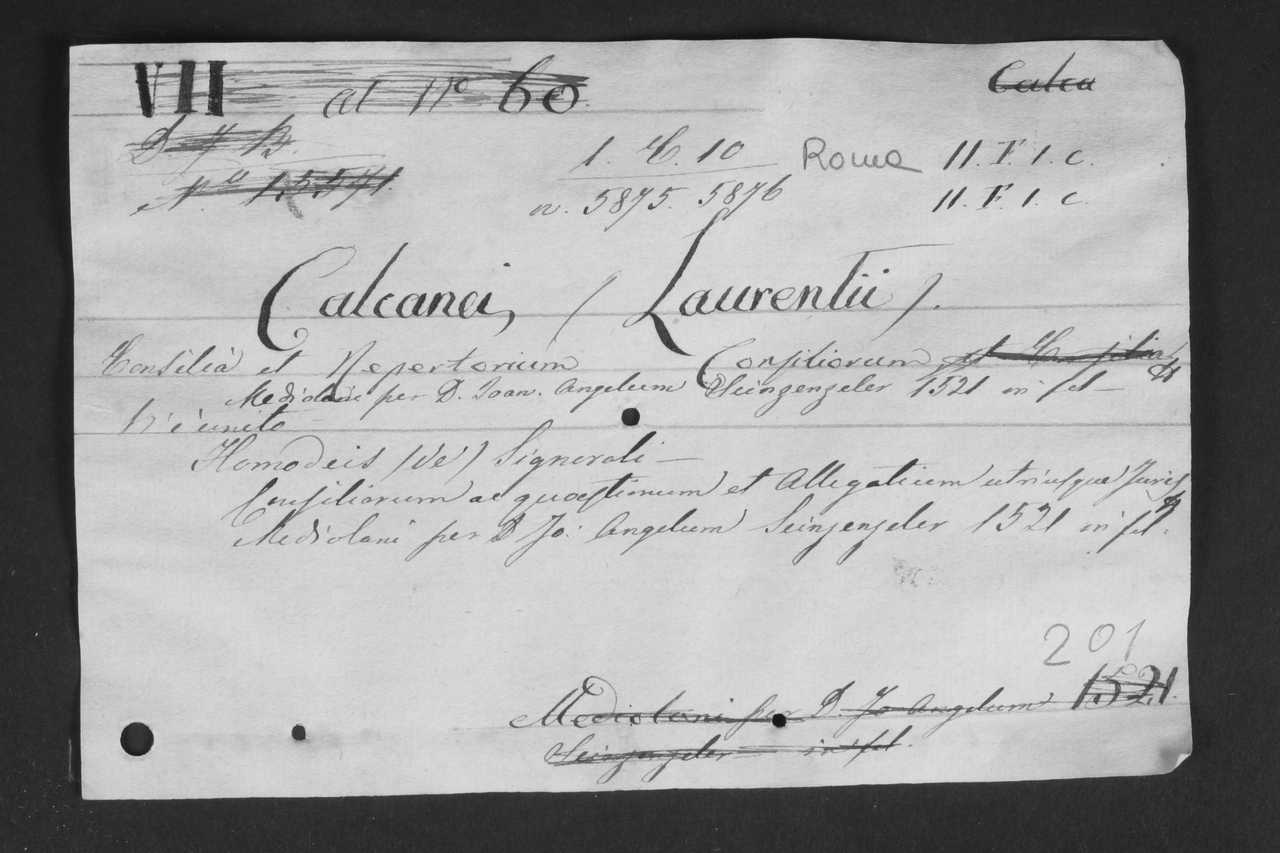 VII al N.º 60 Calca
N.º 1,5,571.
1. C. 10 Roma 11. F. 1. c.
n. 5875. 5876 11. F. 1. c.
Calcanei, (Laurentii).
Consilia et Repertorium Consiliorum et Consilia
Mediolani per D. Joan. Angelum Scinzenzeler 1521 in fol
Vi è unito
Homodeis (de) Signoroli
Consiliorum ac quæstionum et Allegatium utriusque Juris
Mediolani per D Jo: Angelum Scinzenzeler 1521 in fol.
201
Mediolani per D. Jo Angelum 1521.
Scinzenzeler in fol.